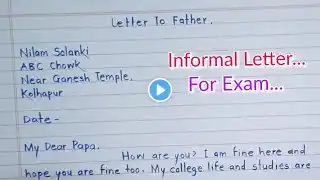 Letter To Father.
Nilam Solanki
ABC Chowk
Near Ganesh Temple,
Kolhapur
Informal Letter...
For Exam...
Date -
My Dear Papa,
How are you? I am fine here and
hope you are fine too. My college life and studies are